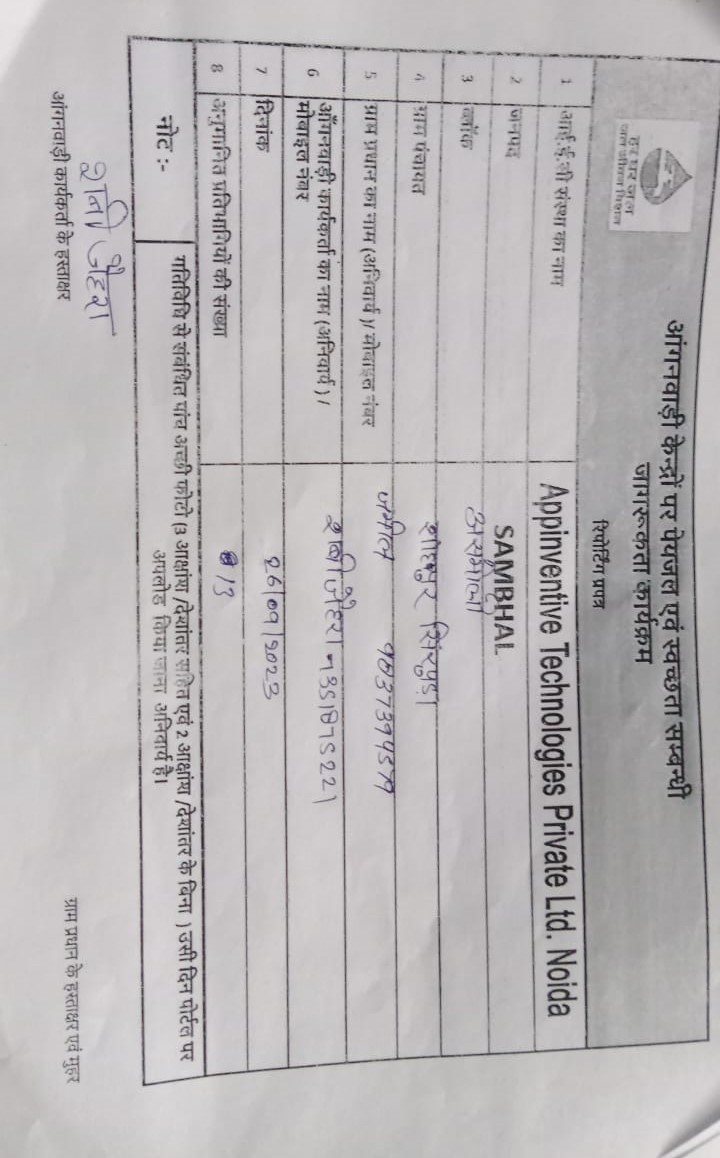 हर घर जल
जल जीवन मिशन
आंगनवाड़ी केन्द्रों पर पेयजल एवं स्वच्छता सम्बन्धी
जागरूकता कार्यक्रम
रिपोर्टिंग प्रपत्र
1 आई.ई.सी संस्था का नाम Appinventive Technologies Private Ltd. Noida
2 जनपद SAMBHAL
3 ब्लॉक असमोली
4 ग्राम पंचायत
5 ग्राम प्रधान का नाम (अनिवार्य )/ मोबाइल नंबर
6 आँगनवाड़ी कार्यकर्ता का नाम (अनिवार्य )/
मोबाइल नंबर
7 दिनांक 26/09/2023
8 अनुमानित प्रतिभागियों की संख्या 13
नोट :- गतिविधि से संबंधित पांच अच्छी फोटो (3 आक्षांश /देशांतर सहित एवं 2 आक्षांश /देशांतर के बिना ) उसी दिन पोर्टल पर
अपलोड किया जाना अनिवार्य है।
आंगनवाड़ी कार्यकर्ता के हस्ताक्षर
ग्राम प्रधान के हस्ताक्षर एवं मुहर